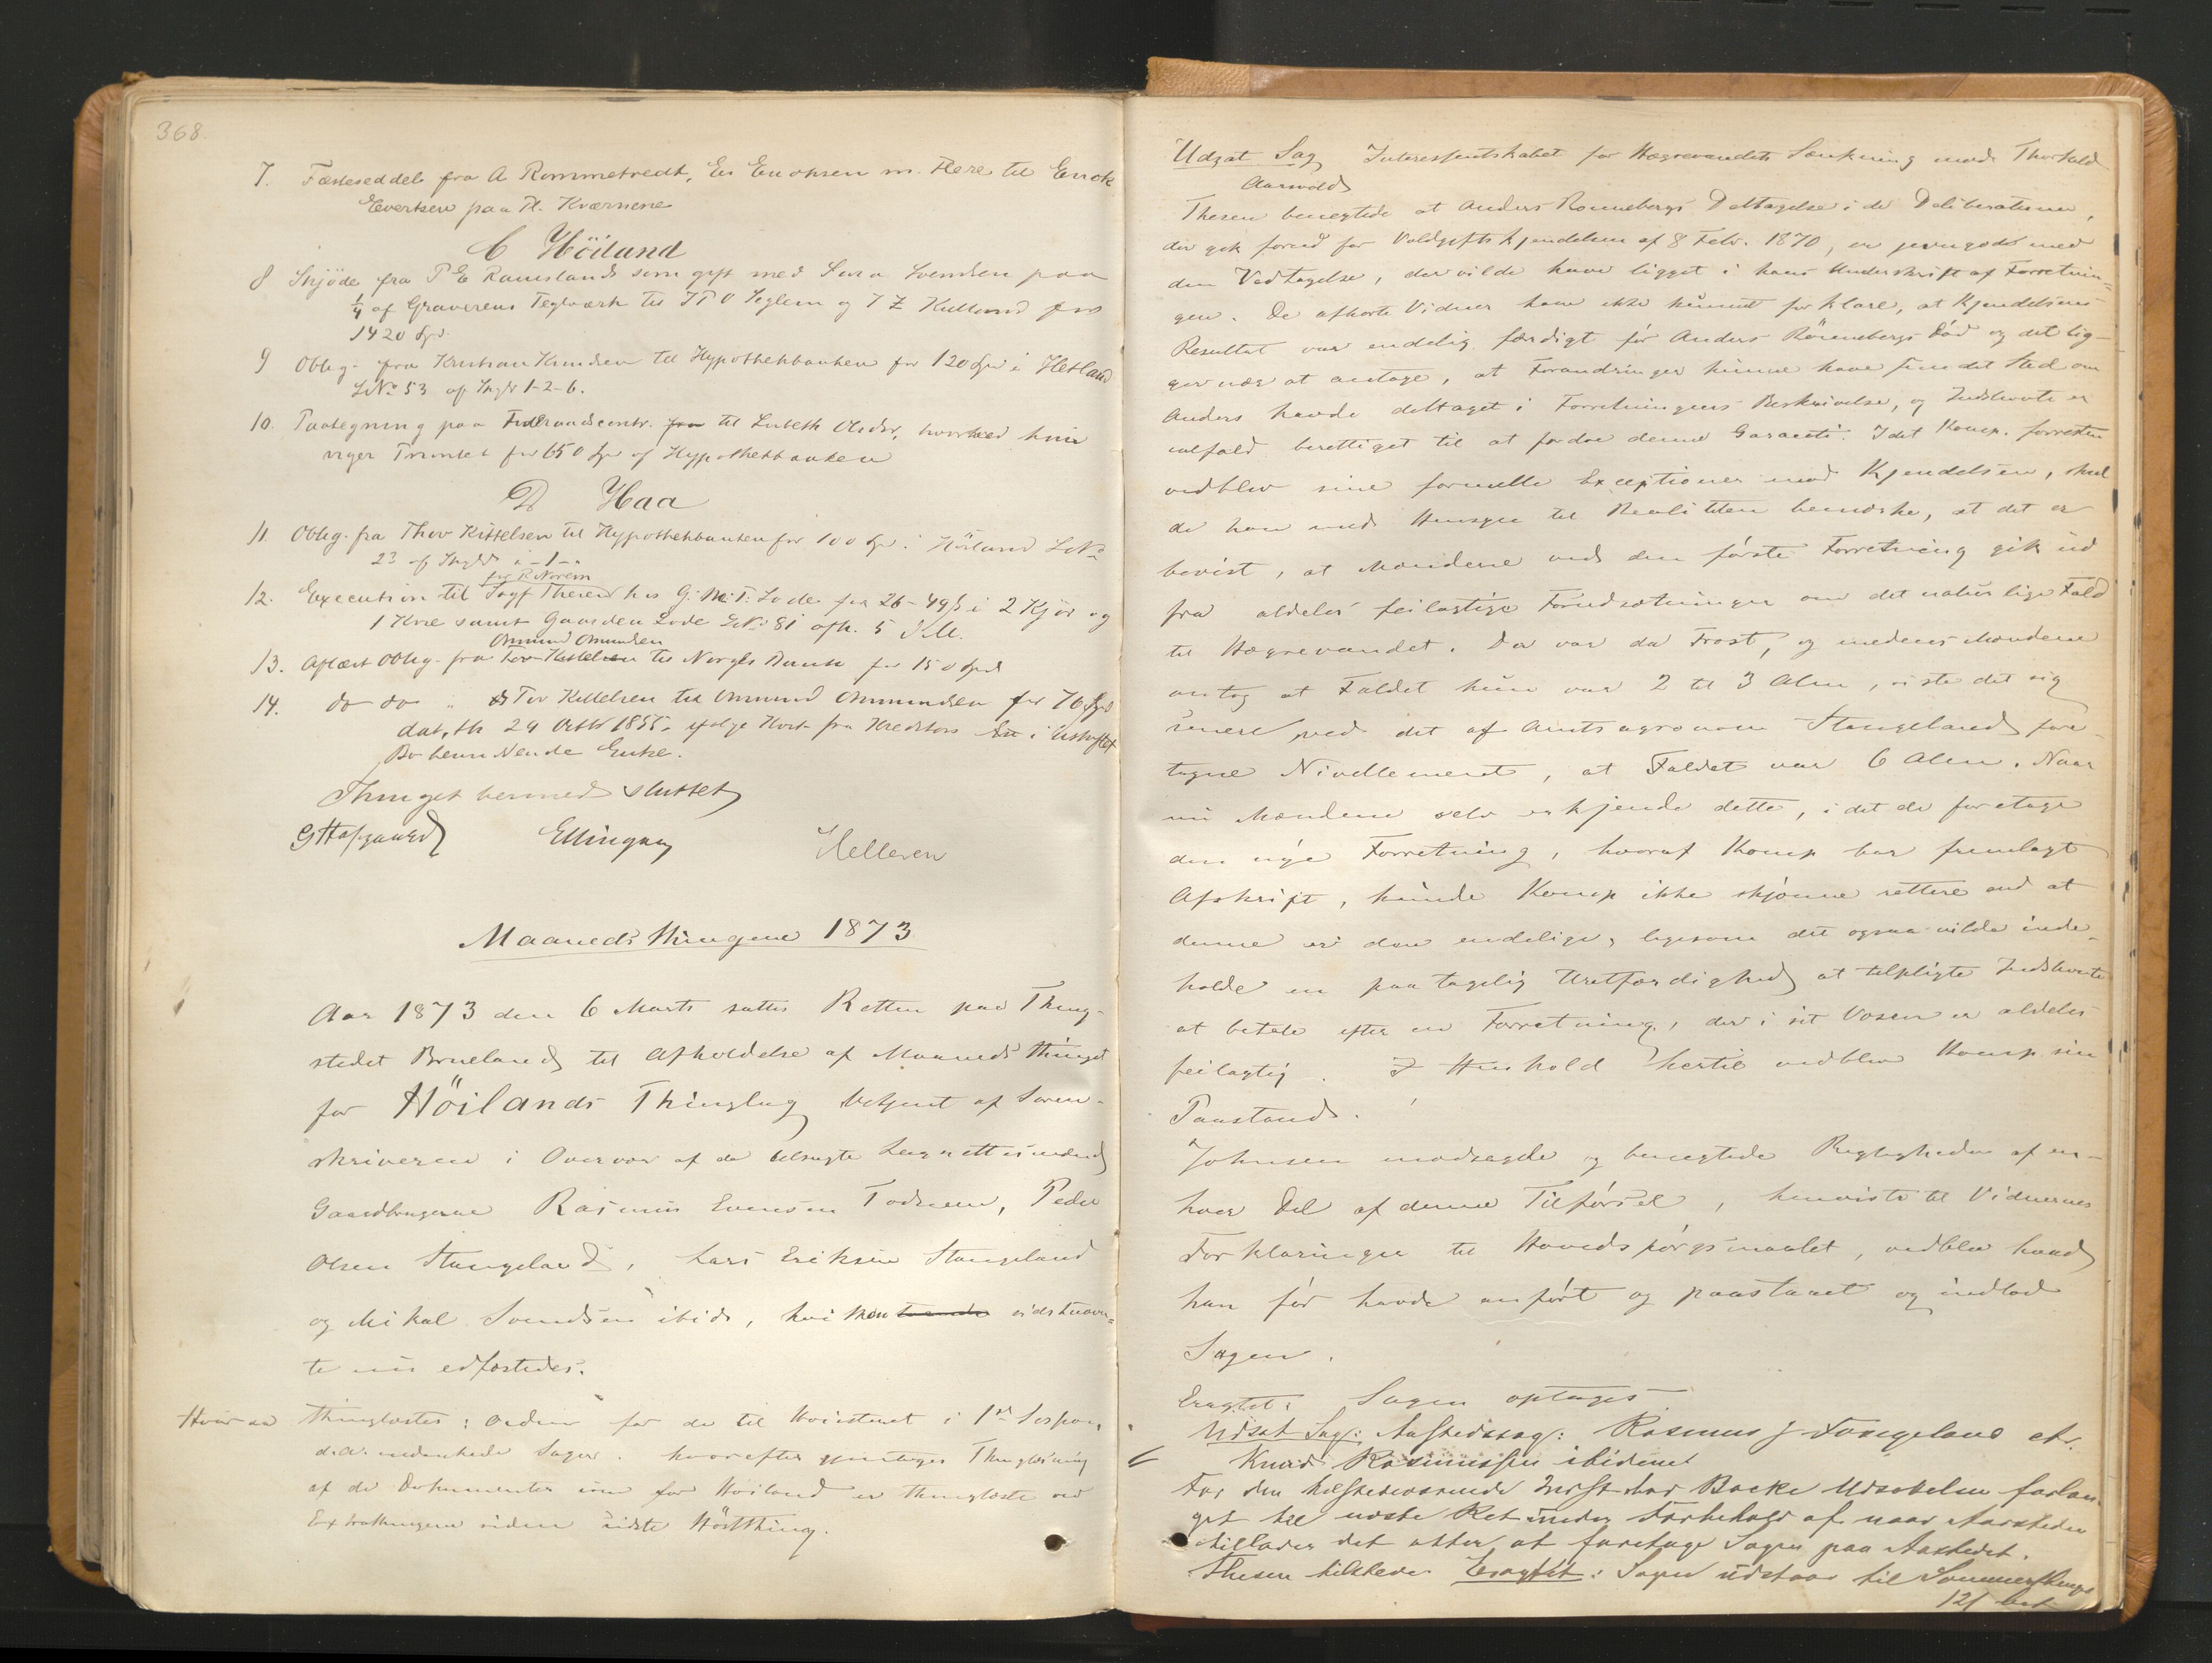 368.
7. Fæsteseddel fra A Rommetvedt, Es Enoksen m. Flere til Enok
Evertsen paa Pl. Kværnene
C Höiland
8 Skjöde fra P E Ramslands som gift med Svendsen paa
1/4 af Graverens Teglværk til T P O Seglem og T Z Kielland for
1420 Spd.
9 Oblig. fra Kristian Knudsen til Hypothekbanken for 120 Spd i Hetland
LNo 53 af Skyld 1-2-6.
10. Paategning paa Föderaadscontr. fra til Lisbeth Olsdr, hvorved hun
viger Prioritet for 650 Spd af Hypothekbanken
D Haa
11. Oblig. fra Thor Kittelsen til Hypothekbanken for 100 Spd i Hörland LNo
23 af Skyld
for R Norem
12. Execution til Sagf Thesen hos G. M. T. Lode for 26-49 ß i 2 Kjör og
1 Kvie samt Gaarden Lode LNo 81 afh. 5
Omund Omundsen
13. Aflæst Oblig. fra Tor Kittelsen til Norges Bank for 150 Spd
14. do do " Tor Kittelsen til Omund Ommundsen for 70 Spd
dat. 29 Octbr 1855, ifölge Kreditors i Uskiftet
Bo hensiddende Enke.
Thinget hermed sluttet
G Hofgaard Ellingsen Helleren
Maaneds Thingene 1873
Aar 1873 den 6 Marts sattes Retten paa Thing-
stedet Brueland til Afholdelse af Maaneds thinget
for Höilands Thinglag betjent af Soren-
skriveren i Overvær af de tilsagte Laugrettesmænd
Gaardbrugerne Rasmus Evensen Todnem, Peder
Olsen Stangeland, Lars Eriksen Stangeland
og Mikal Svendsen ibid, hvilken sidstnævn=
te nu edfæstedes.
Hvor da Thinglæstes: Orden for de til Höiesteret i 1ste Session
d. A. indankede Sager. hvorefter gjentoges Thinglæsning
af de Dokumenter som for Höiland er thinglæste ved
Extrathingene siden sidste Höstthing.
Udsat Sag Interessentskabet for Hægrevandets Sænkning mod Thorkel
Aarsvold
Thesen benegtede at Anders Rönnebergs Deltagelse i de Deliberationer,
der gik forud for Voldgiftskjendelsen af 8 Febr. 1870, er jevngod med
den Vedtagelse, der vilde have ligget i hans Underskrift af Forretnin-
gen. De afhørte Vidner have ikke kunnet forklare, at Kjendelsens
Resultat var endelig færdigt för Anders Rönnebergs Död og det lig-
ger nær at antage, at Forandringer kunne have fundet Sted om
Anders havde deltaget i Forretningens Beskrivelse, og Indstevnte er
ialfald berettiget til at fordre denne Garanti. Idet Komp. forresten
vedblev sine formelle Exceptioner mod Kjendelsen, skul
de han med Hensyn til Realiteten bemærke, at det er
bevist, at Mændene ved den förste Forretning gik ud
fra aldeles feilagtige Forudsætninger om det naturlige Fald
til Hægrevandet. Da var da Frost, og medens Mændene
antog at Faldet kun var 2 til 3 Alen, viste det sig
senere ved det af Amtsagronom Stangeland fore-
tagne Nivellement, at Faldet var 6 Alen. Naar
nu Mændene selv erkjende dette, i det de foretage
den nye Forretning, hvoraf Komp har fremlagt
Afskrift, kunde Komp ikke skjönne rettere end at
denne er den endelige, ligesom det ogsaa vilde inde-
holde en paatagelig Uretfærdighed at tilpligte Indstevnte
at betale efter en Forretning, der i sit Væsen er aldeles
feilagtig. I Henhold hertil vedblev Komp sin
Paastand.
Johnsen modsagde og benegtede Rigtigheden af en-
hver Del af denne Tilförsel, henviste til Vidnernes
Forklaringer til Hovedspörgsmaalet, vedblev hvad
han för havde anfört og paastaaet og indlod
Sagen.
Eragtet: Sagen optages
Udsat Sag: Aastedssag: Rasmus J. Fongeland ctr.
6 Knud Rasmussen ibidem
For den hosstedeværende Indst har Backe Udsættelse forlan-
get til næste Ret under Forbehold af naar Aarstiden
tillader det atter at foretage Sagen paa Aastedet.
Thesen tilstede. Eragtet: Sagen udstaar til Sommerthinget